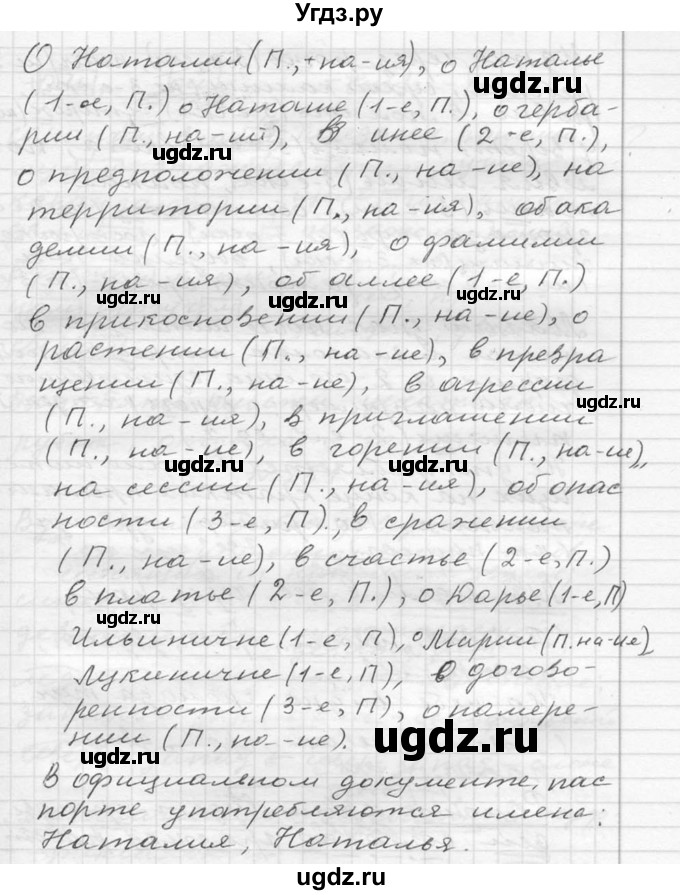 Угдз.ру
О Наталии (П., на-ия), о Наталье
(1-е, П.) о Наташе (1-е, П.), о герба-
рии (П., на-ий), в инее (2-е, П.),
ugdz.ru ugdz.ru
о предположении (П., на-ие), на
территории (П., на-ия), об ака
ugdz.ru
демии (П., на-ия), о фамилии
(П., на-ия), об аллее (1-е, П.)
ugdz.ru ugdz.ru
в прикосновении (П., на-ие), о
растении (П., на-ие), в превра
ugdz.ru
щении (П., на-ие), в агрессии
ugdz.ru
(П., на-ия), в приглашении
(П., на-ие), в горении (П., на-ие),
ugdz.ru ugdz.ru
на сессии (П., на-ия), об опас
ности (3-е, П)., в сражении
ugdz.ru
(П., на-ие), в счастье (2-е, П.)
в платье (2-е, П.), о Дарье (1-е, П)
ugdz.ru
Ильиничне (1-е, П), о Марии (П. на-ие),
Лукиничне (1-е, П), в догово-
ugdz.ru
ренности (3-е, П), о намере-
нии (П., на-ие).
ugdz.ru ugdz.ru
В официальном документе, пас
порте употребляются имена:
ugdz.ru
Наталия, Наталья.
ugdz.ru